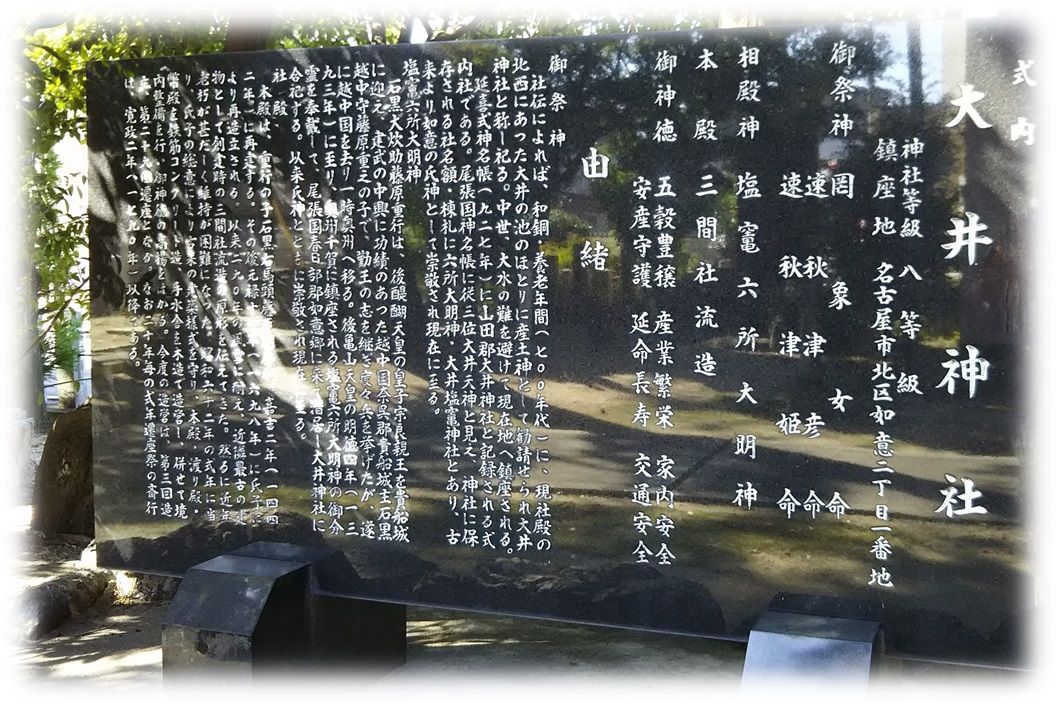 式内
大井神社
神社等級 八等級
鎮座地 名古屋市北区如意二丁目一番地
御祭神 罔象女命
速秋津彦命
速秋津姫命
相殿神 塩竈六所大明神
本殿 三間社流造
御神徳 五穀豊穣 産業繁栄 家内安全
安産守護 延命長寿 交通安全
由緒
御祭神
社伝によれば、和銅・養老年間(七〇〇年代)に、現社殿の
北西にあった大井の池のほとりに産土神として勧請せられ大井
神社と称し祀る。中世、大水の難を避けて現在地へ鎮座される。
延喜式神名帳(九二七年)に山田郡大井神社と記録される式
内社である。尾張国神名帳に従三位大井天神と見え、神社に保
存される社名額・棟札に六所大明神、大井塩竈神社とあり、古
来より如意の氏神として崇敬され現在に至る。
塩竈六所大明神
石黒大炊助藤原重行は、後醍醐天皇の皇子宗良親王を貴船城
に迎え、建武の中興に功績のあった越中国奈呉郡貴船城主石黒
越中守藤原重之の子で、勤王の志を継ぎ度々兵を挙げたが、遂
に越中国を去り一時奥州へ移る。後亀山天皇の明徳四年(一三
九三年)に至り、奥州千賀に鎮座される塩竈六所大明神の御分
霊を奉戴して、尾張国春日部郡如意郷に来
合祀する。以来氏神とともに崇敬され現在に至る。
社殿
本殿は、重行の子石黒右馬頭
二年)に再建する。その後元禄
より再造立される。以来二九〇年の
物として創建時の三間社流造の原形を伝えてきた。然るに近年
老朽が甚だしく維持が困難になった。昭和六十二年の式年に当
り、氏子の総意により古来の
幣殿を鉄筋コンクリート造、手水舎を木造で造営し、併せて境
内整備を行い、御神徳の高揚をはかる。今度の造営は、第三回造
なお二十年毎の式年遷座祭の斎行
は、寛政二年(一七九〇年)以降である。